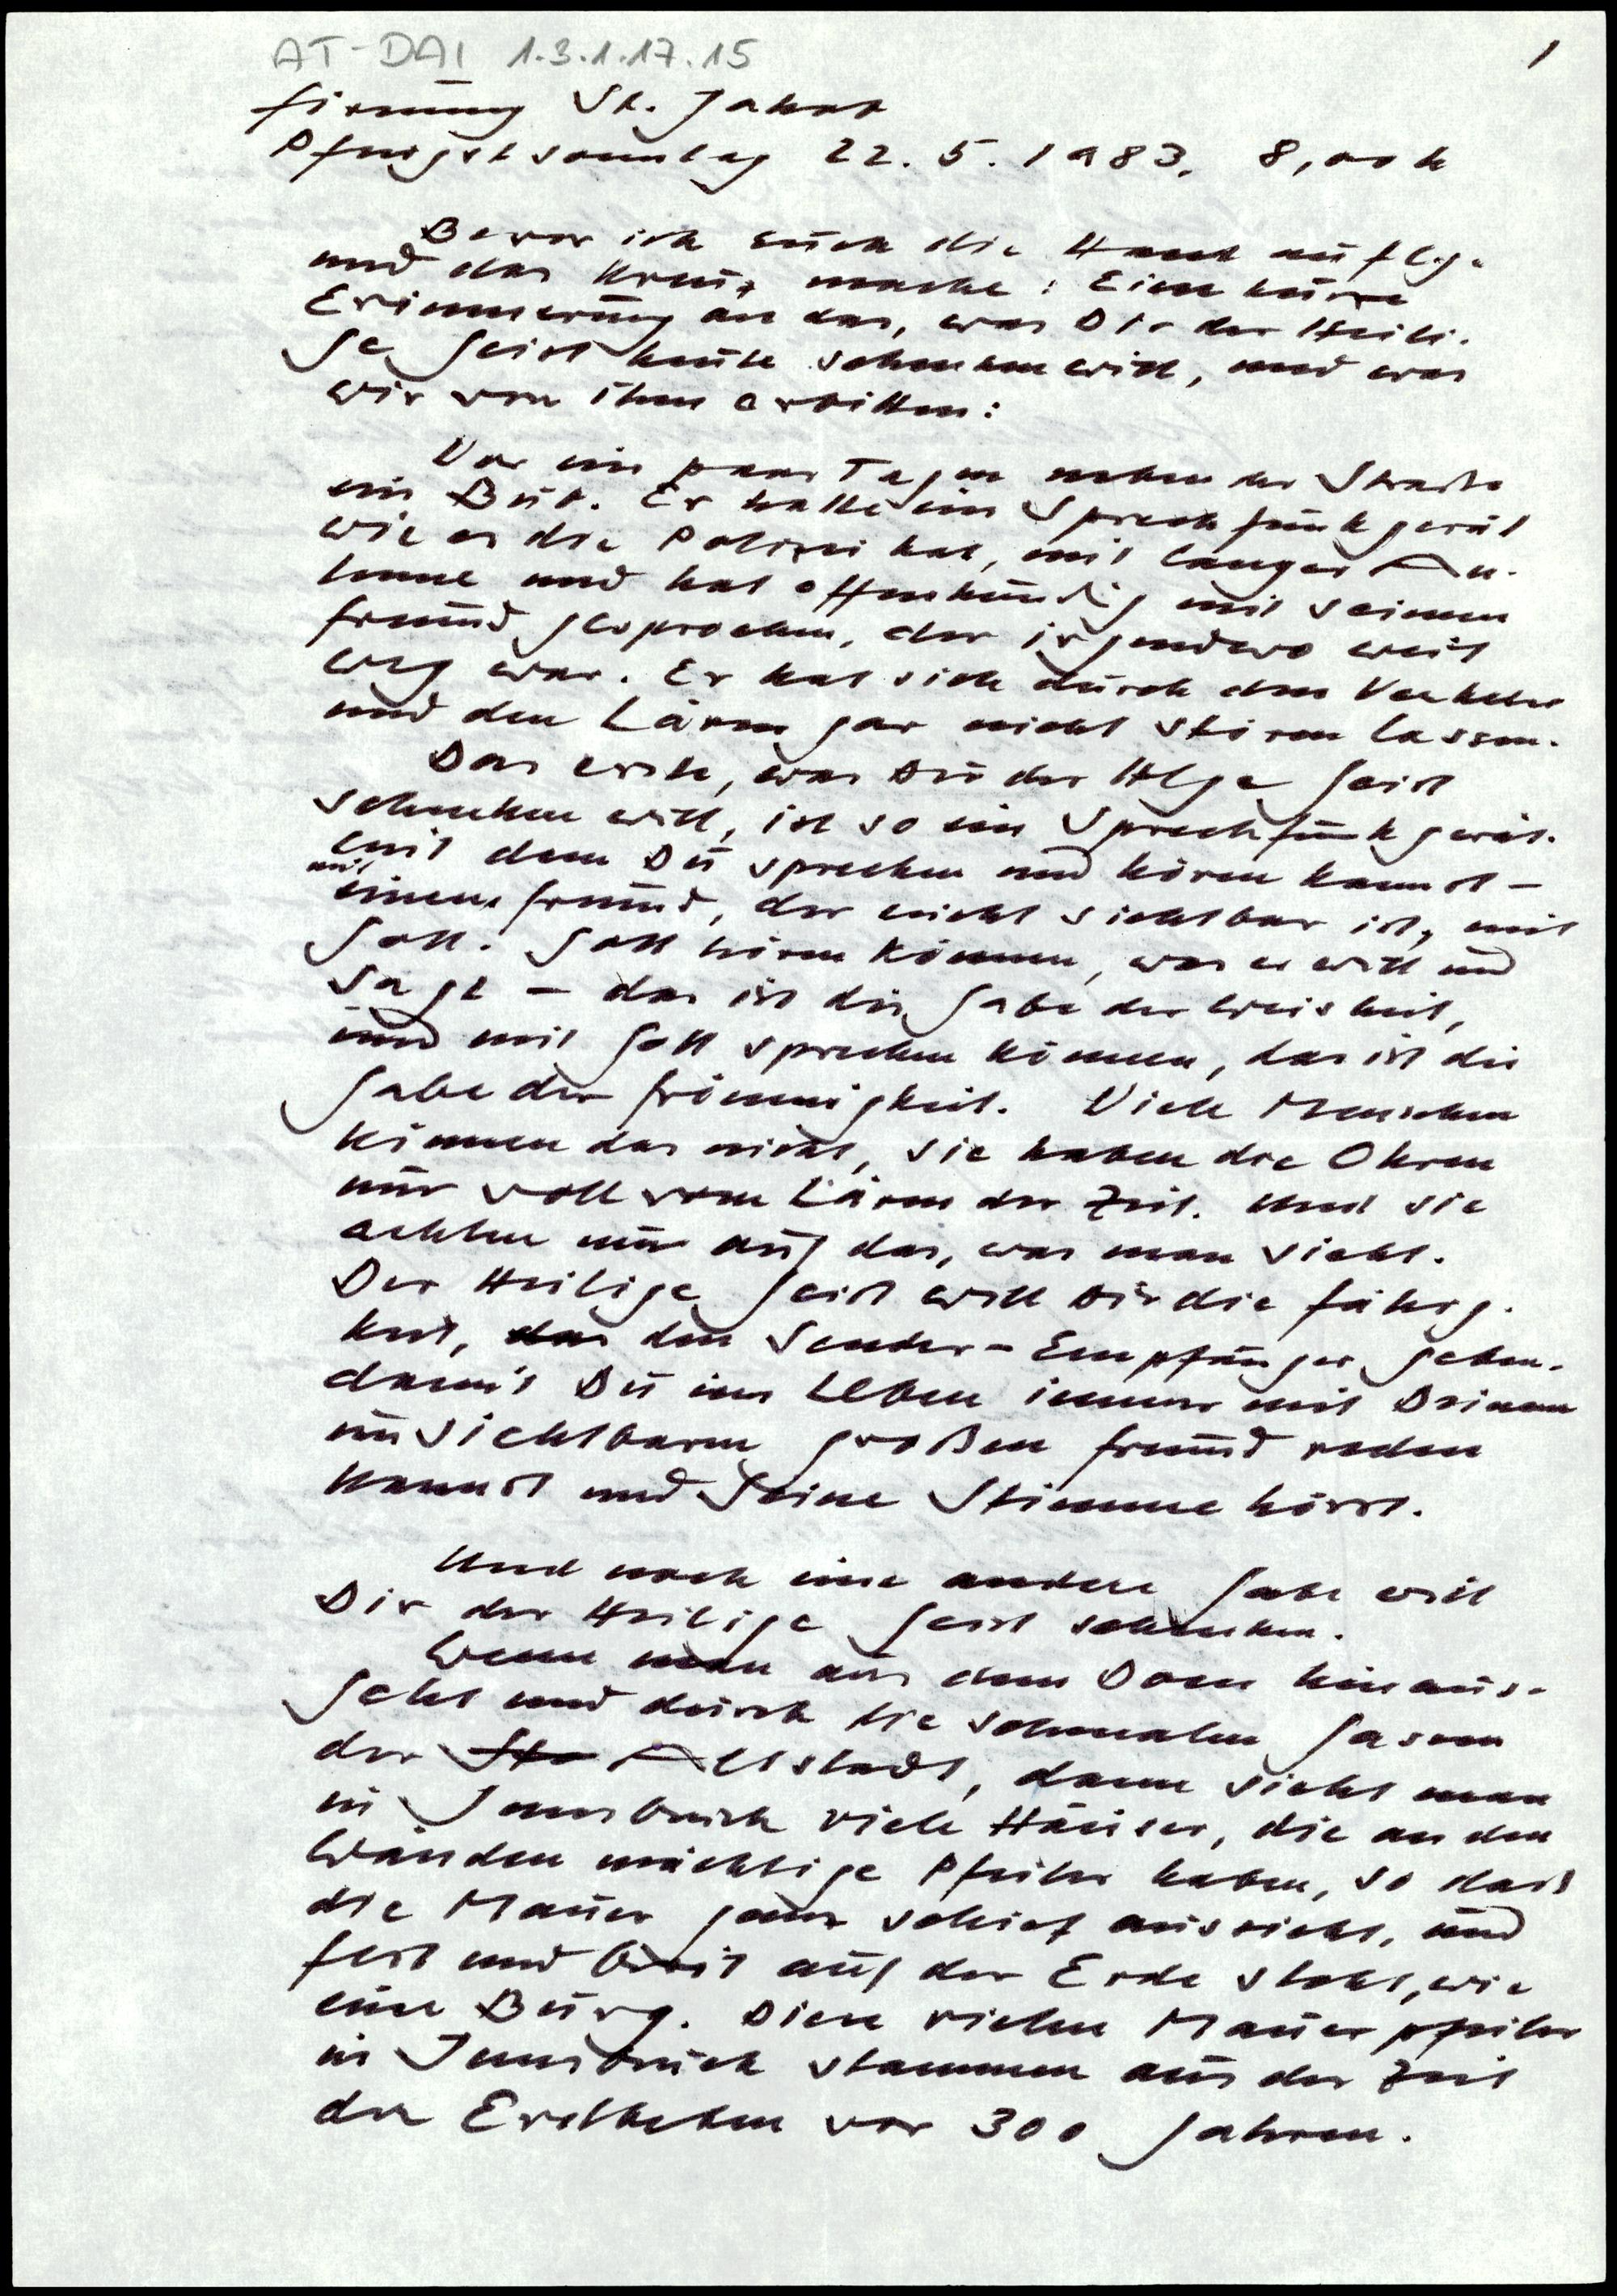 AT-DAI 1.3.1.17.15
1
Firmung St. Jakob
Pfingstsonntag 22.5.1983, 8,00 h
Bevor ich Euch die Hand auflege
und das Kreuz mache: Eine kurze
Erinnerung an das, was Dir der Heili-
ge Geist heute schenken will, und was
wir von ihm erbitten:
Vor ein paar Tagen neben der Straße
ein Bub. Er hatte ein Sprechfunkgerät
wie es die Polizei hat, mit langer An-
tenne und hat offenkundig mit seinem
Freund gesprochen, der irgendwo weit
weg war. Er hat sich durch den Verkehr
und den Lärm gar nicht stören lassen.
Das erste, was Dir der Hlge Geist
schenken will, ist so ein Sprechfunkgerät.
mit dem Du sprechen und hören kannst –
mit
einem Freund, der nicht sichtbar ist, mit
Gott. Gott hören können, was er will und
sagt – das ist die Gabe der Weisheit,
und mit Gott sprechen können, das ist die
Gabe der Frömmigkeit. Viele Menschen
können das nicht, sie haben die Ohren
nur voll vom Lärm der Zeit. Und sie
achten nur auf das, was man sieht.
Der Heilige Geist will Dir die Fähig-
keit, das den Sender-Empfänger geben.
damit Du im Leben immer mit Deinem
unsichtbaren großen Freund reden
kannst und Seine Stimme hörst.
Und noch eine andere Gabe will
Dir der Heilige Geist schenken.
Wenn man aus dem Dom hinaus-
geht und durch die schmalen Gassen
der Sta Altstadt, dann sieht man
in Innsbruck viele Häuser, die an den
Wänden mächtige Pfeiler haben, so dass
die Mauer ganz schief aussieht, und
fest und breit auf der Erde steht, wie
eine Burg. Diese vielen Mauerpfeiler
in Innsbruck stammen aus der Zeit
der Erdbeben vor 300 Jahren.